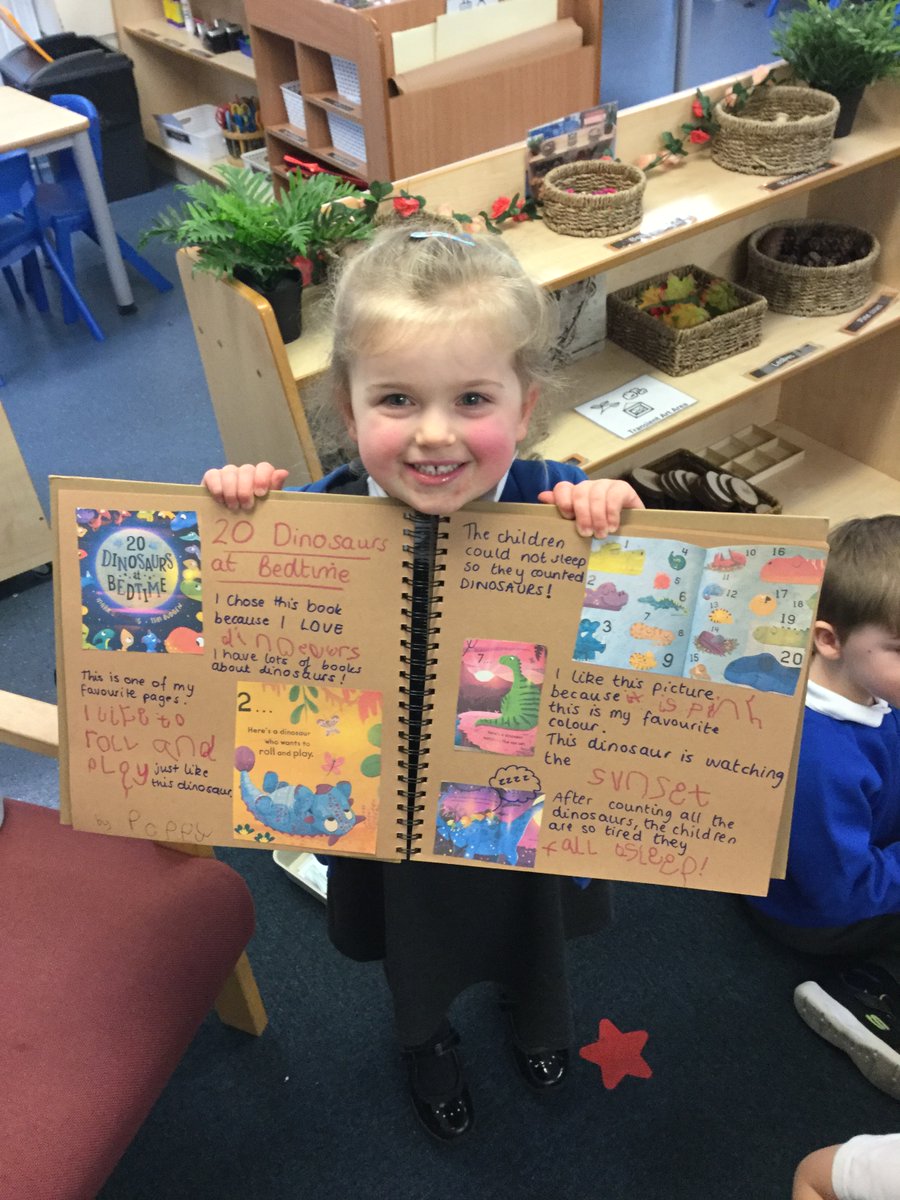 20 DINOSAURS
at
BEDTIME
20 Dinosaurs
at Bedtime
I chose this book
because I LOVE
I have lots of books
about dinosaurs!
This is one of my
favourite pages.
I like to
roll and
play just like
this dinosaur
by Poppy
2...
Here's a dinosaur
who wants to
roll and play.
The children
could not sleep
so they counted
DINOSAURS!
1
2
3
4
5
6
7
8
9
10
11
12
13
14
15
16
17
18
19
20
7
I like this picture
because it is pink
this is my favourite
colour.
This dinosaur is watching
the
sunset
zzzz
After counting all the
dinosaurs, the children
are so tired they
fall asleep!
Transient Art Area